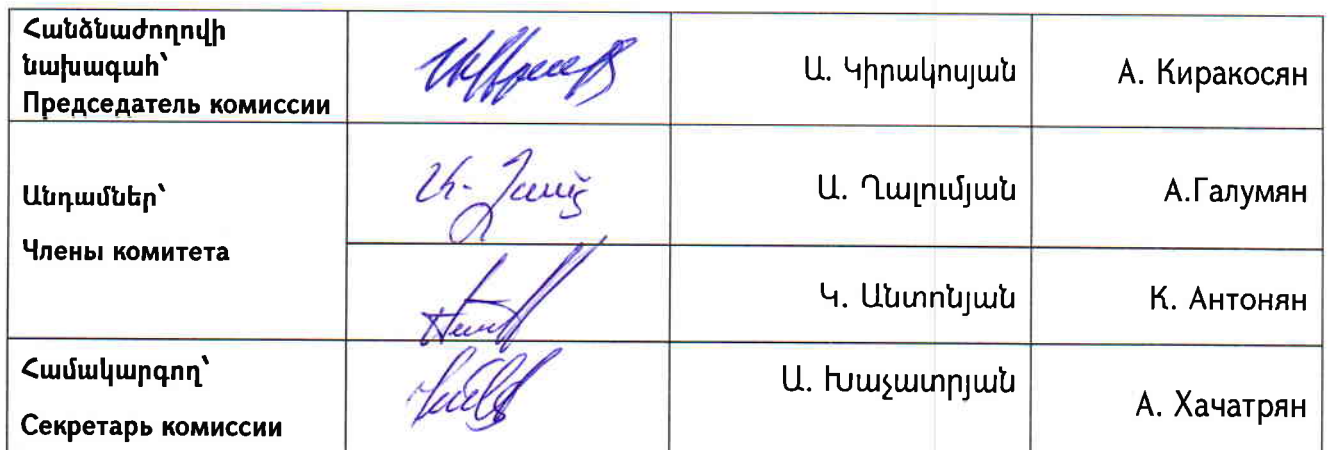 Հանձնաժողովի
նախագահ՝
Председатель комиссии
Ա. Կիրակոսյան
А. Киракосян
Անդամներ՝
Члены комитета
Ա. Ղալումյան
А.Галумян
Կ. Անտոնյան
К. Антонян
Համակարգող՝
Секретарь комиссии
Ա. Խաչատրյան
А. Хачатрян